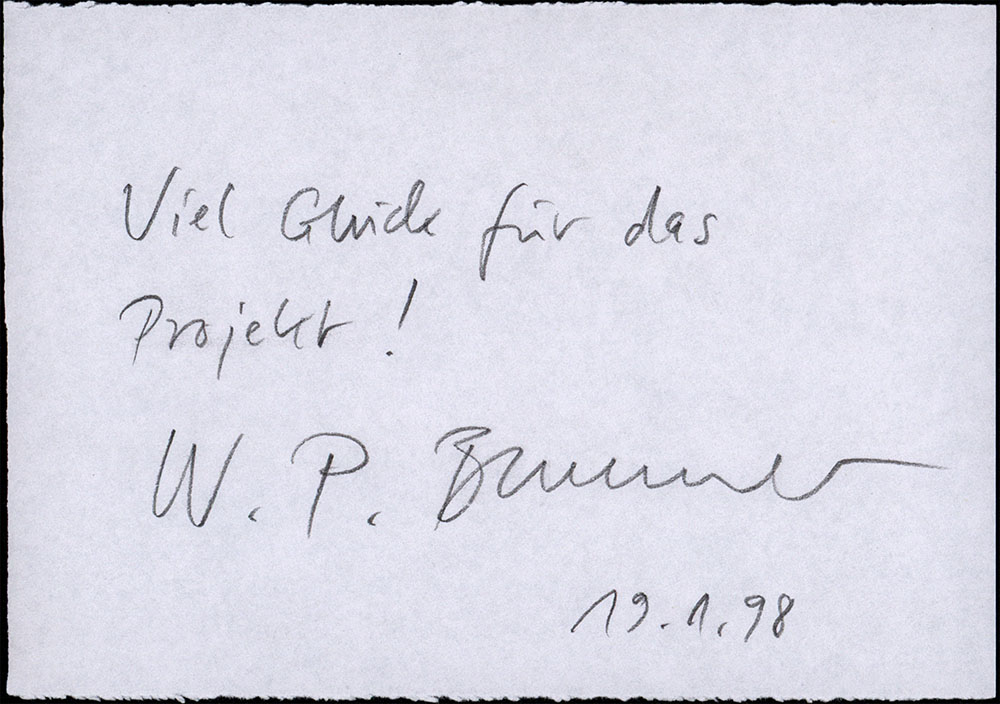 Viel Glück für das
Projekt!
W. P. Brunner
19.1.98